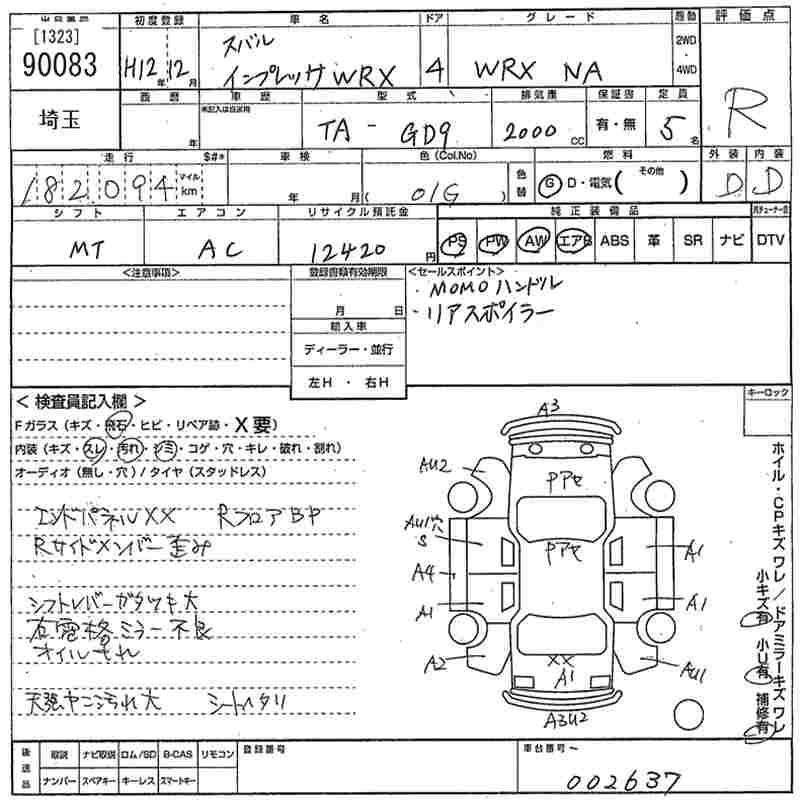 [1323]
90083
初度登録 車名 ドア グレード 駆動 評価点
H12年 12月
スバル
インプレッサ WRX 4 WRX NA
2WD
・
4WD
R
埼玉
西暦 車歴 型式 排気量 保証書 定員
未記入は自家用
年 TA - GD9 2000 cc 有・無 5名
走行 車検 色(Col.No) 燃料 外装 内装
182,094 マイル km
年 月 ( 01G ) 色替 G D・電気( その他 ) D D
シフト エアコン リサイクル預託金 純正装備品
MT AC 12420円 PS PW AW エアB ABS 革 SR ナビ DTV
<注意事項> 登録書類有効期限 <セールスポイント>
・MOMOハンドル
月 日 ・リアスポイラー
輸入車
ディーラー・並行
左H ・ 右H
< 検査員記入欄 > キーロック
Fガラス (キズ・飛石・ヒビ・リペア跡・X要)
内装 (キズ・スレ・汚れ・シミ・コゲ・穴・キレ・破れ・割れ)
オーディオ (無し・穴) / タイヤ (スタッドレス)
エンドパネルXX RフロアBP
Rサイドメンバー歪み
シフトレバーガタツキ大
右電格ミラー不良
オイルもれ
天張ヤニ汚れ大 シートヘタリ
A3
AU2 Pアセ
AU1穴
S Pアセ A1
A4
A1 A1
A2 XX AU1
A1
A3U2
ホイル・CPキズ ワレ / ドアミラーキズ ワレ
小キズ有 小U有 補修有
後送品 取説 ナビ取説 ロム/SD B-CAS リモコン 登録番号 車台番号
ナンバー スペアキー キーレス スマートキー 002637